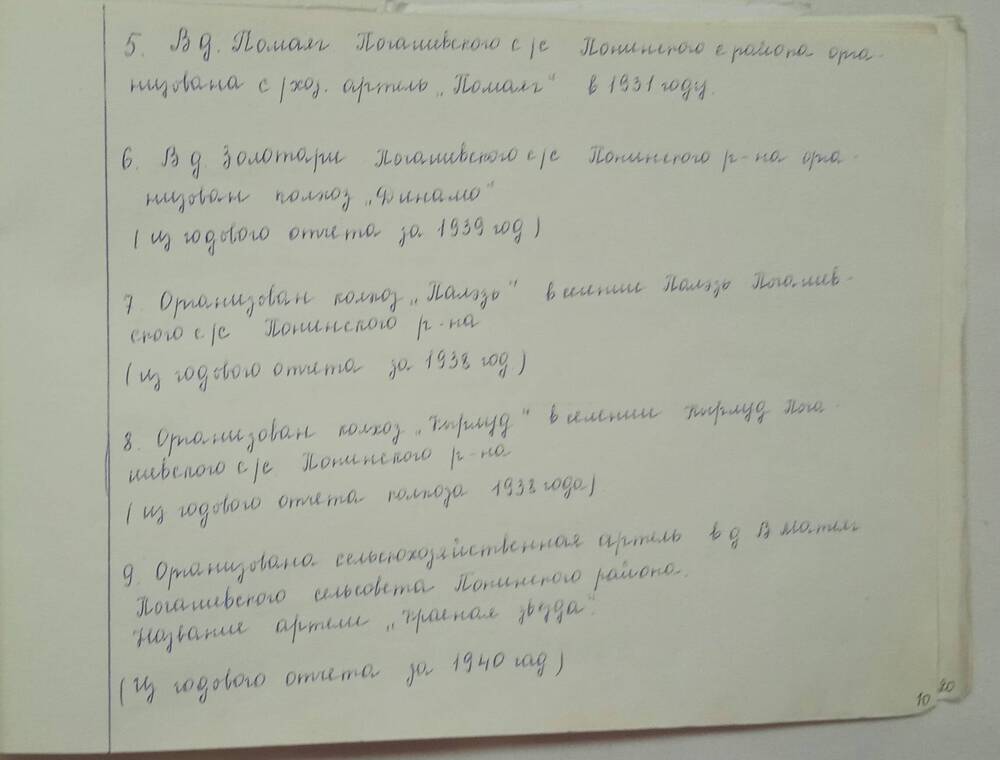 5. В д. Помаяг Погашевского с/с Понинского с района орга-
низована с/хоз. артель „Помаяг" в 1931 году.
6. В д. Золотари Погашевского с/с Понинского р-на орга-
низован колхоз „Динамо"
(из годового отчета за 1939 год)
7. Организован колхоз „Палэзь" в селении Палэзь Погашев-
ского с/с Понинского р-на
(из годового отчета за 1938 год)
8. Организован колхоз „Кырлуд" в селении Кырлуд Пога-
шевского с/с Понинского р-на
(из годового отчета колхоза 1938 года)
9. Организована сельскохозяйственная артель в д В
Погашевского сельсовета Понинского района.
Название артели „Красная звезда".
(Из годового отчета за 1940 год)
10
20